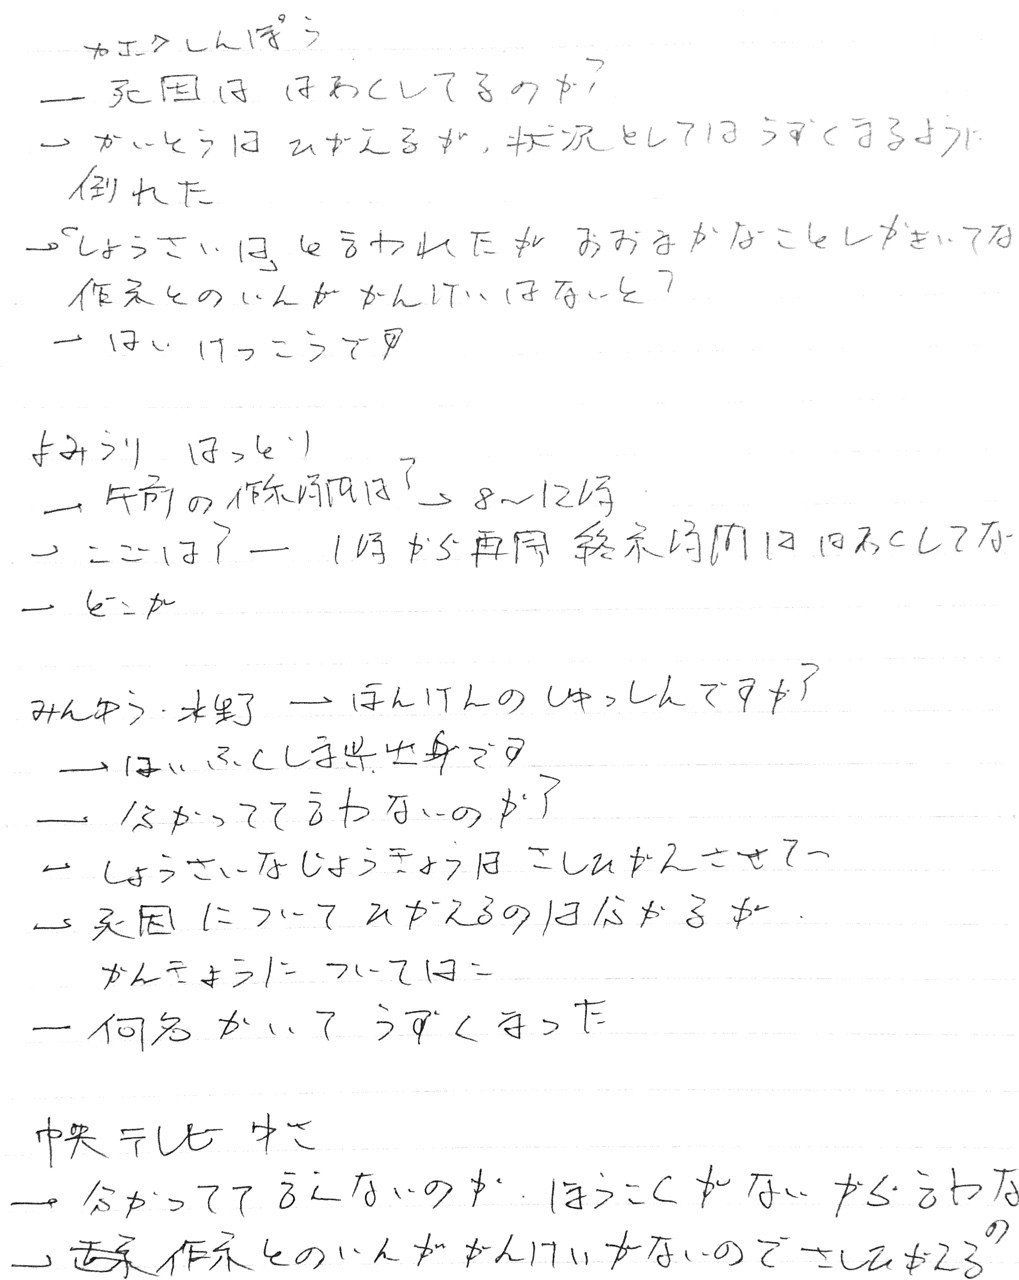 カエクしんぽう
― 死因は はあくしてるのか?
→ かいとうはひかえるが、状況としてはうずくまるように
倒れた
→「しょうさいは」と言われたが おおまかなことしかきいてな
作系とのいんがかんけいはないと?
→ はい けっこうです
よみうり はっとり
→ 午前の作系時間は? → 8〜12時
→ ここは? ― 1時から再開 終示時間は はあくしてな
→ どこか
みんゆう・水野 → ほんけんのしゅっしんですか?
→ はい ふくしま県出身です
― 分かってて言わないのか?
→ しょうさいなじょうきょうは さしひかえさせて〜
→ 死因についてひかえるのは分かるが
かんきょうについては
― 何名かいて うずくまった
中央テレビ ゆさ
→ 分かってて言えないのか ほうこくがないから言わな
→ 作系とのいんがかんけいがないのでさしひかえるの